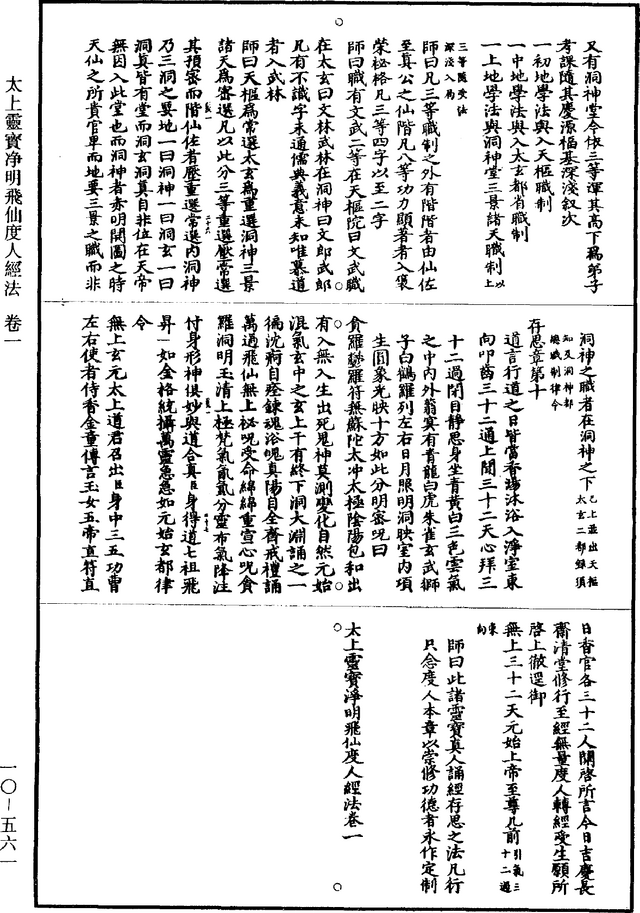 太上靈寶淨明飛仙度人經法　卷一
一〇－五六一
又有洞神堂令依三等渾其高下爲弟子
考課隨其慶源福基深淺叙次
一初地學法與入天樞職制
一中地學法與入太玄都省職制
一上地學法與洞神堂三景諸天職制上以
三等隨受法
深淺入爲
師曰凡三等職制之外有階階者由仙佐
至眞公之仙階凡八等功力顯著者入褒
榮秘格凡三等四字以至二字
師曰職有文武二等在天樞院曰文武職
在太玄曰文林武林在洞神曰文郎武郎
凡有不識字未通儒典義意未知唯慕道
者入武林
師曰天樞爲常選太玄爲重選洞神三景
諸天爲審選凡以此分三等重選壓常選
其預審而階仙佐者壓重選常選内洞神
乃三洞之要地一曰洞神一曰洞玄一曰
洞眞皆有堂而洞玄洞眞自非位在天帝
無因入此堂也而洞神者赤明開圖之時
天仙之所貴官卑而地要三景之職而非
洞神之職者在洞神之下已上並出天樞
太玄二都錄須
知及洞神部
奥職制律令
存思章第十
道言行道之日皆當香湯沐浴入淨室東
向叩齒三十二通上聞三十二天心拜三
十二過閉目靜思身坐青黄白三色雲氣
之中内外蓊冥有青龍白虎朱雀玄武獅
子白鶴羅列左右日月照明洞映室内項
生圓象光映十方如此分明密呪曰
貪羅鬱羅符無蘇陀太冲太極陰陽包和出
有入無生出死鬼神莫測變化自然元始
混氣玄中之玄上干有終下洞大淵誦之一
徧沈痾自痊鍊魂浴呪眞陽自全齋戒禮誦
萬過飛仙無上秘呪受命綿綿重宣心呪貪
羅洞明玉清上極梵氣氤氳分靈布氣降注
付身形神俱妙與道合眞臣身得道七祖飛
昇一如金格統攝萬靈急急如元始玄都律
令
無上玄元太上道君召出臣身中三五功曹
左右使者侍香金童傳言玉女五帝直符直
日香官各三十二人關啓所言今日吉慶長
齋清堂修行至經無量度人轉經受生願所
啓上徹逕御
無上三十二天元始上帝至尊几前引氣三
十二過
東
向
師曰此諸靈寶眞人誦經存思之法凡行
只念度人本章以崇修功德者永作定制
太上靈寶淨明飛仙度人經法卷一